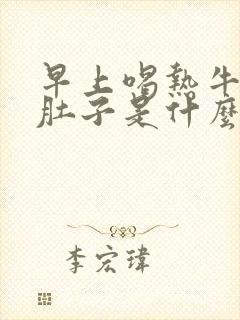 早上喝熱牛
肚子是什麼
李宏瑋